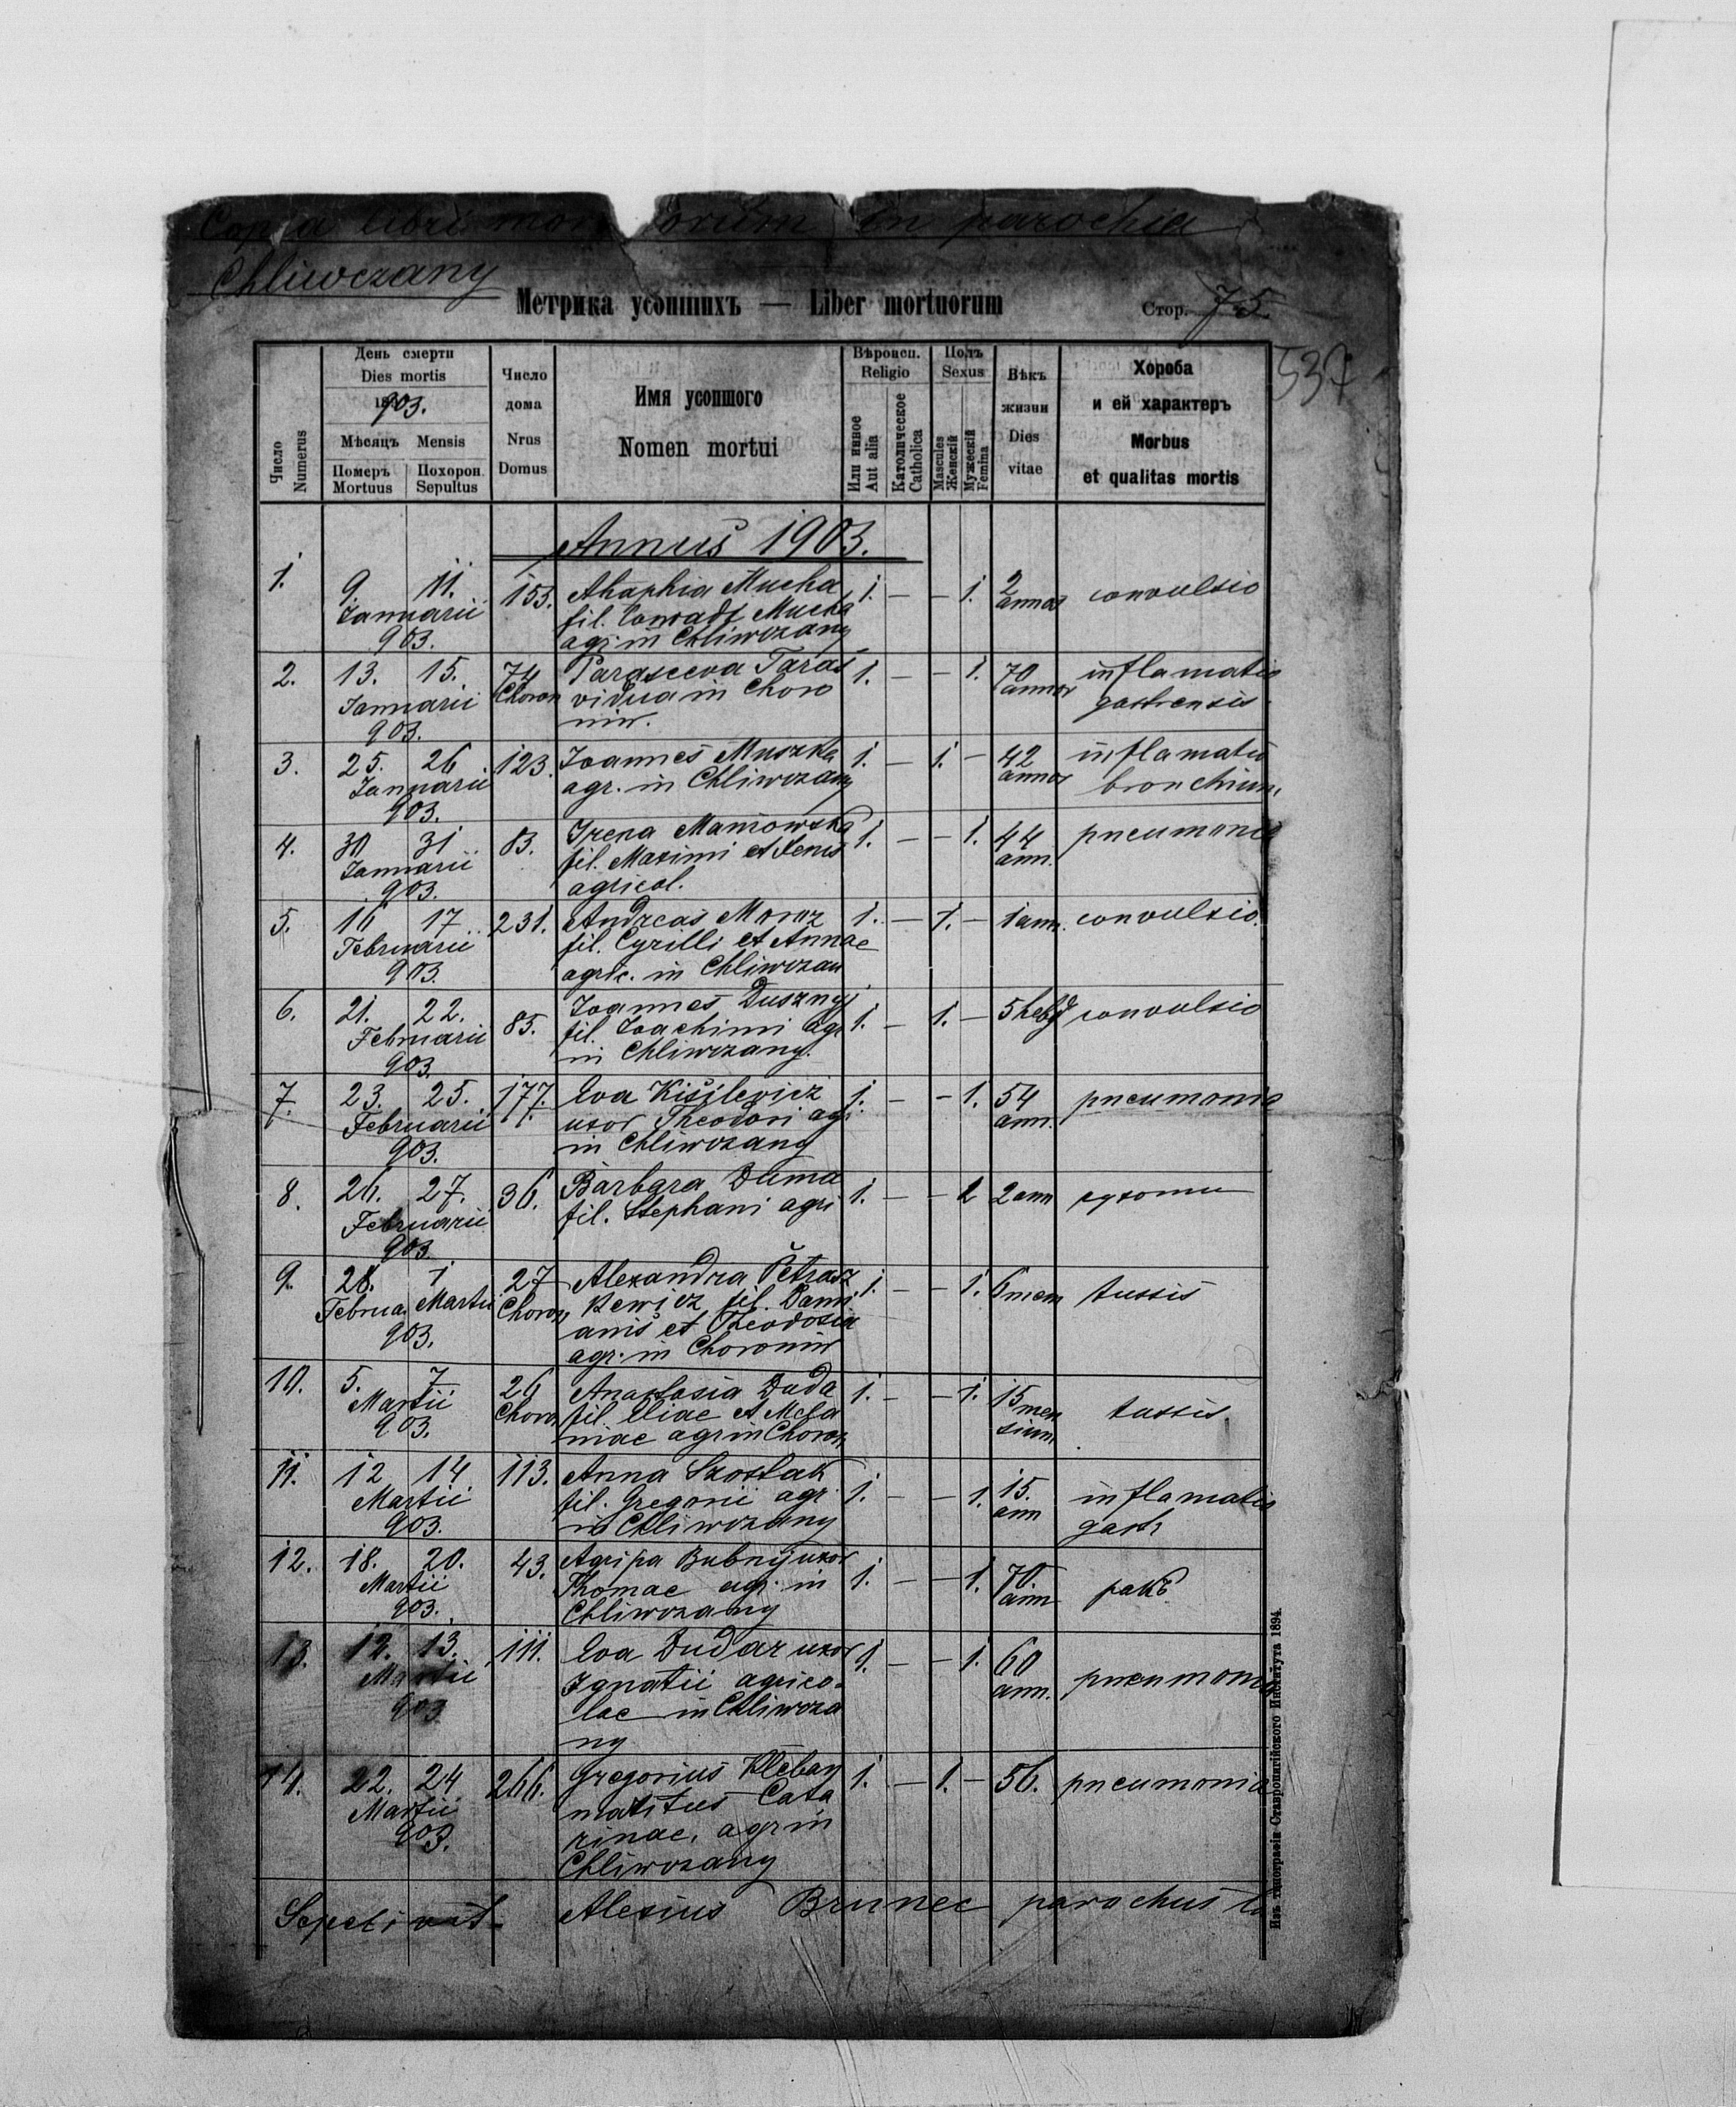 Copia libri mortuorum in parochia
Chliwczany
Метрика усопшихъ — Liber mortuorum
Стор. 75.
537
Число Numerus
День смерти
Dies mortis
1903.
Мѣсяць Mensis
Померъ Mortuus
Похорон. Sepultus
Число дома
Nrus Domus
Имя усопшого
Nomen mortui
Вѣроисп.
Religio
Или инное Aut alia
Католическое Catholica
Полъ
Sexus
Mascules Женскій
Мужескій Femina
Вѣкъ жизни
Dies vitae
Хороба
и ей характеръ
Morbus
et qualitas mortis
Annus 1903.
1. 9. 11. 153. Ahaphia Mucha 1. — — 1. 2 convulsio
Januarii fil. Conradi Mucha annos
903. agr. in Chliwczany
2. 13. 15. 74 Parasceva Taras 1. — — 1. 70 inflamatio
Januarii Choron vidua in Choro annor gastrensis
903. niw.
3. 25. 26 123. Joannes Muszka 1. — 1. — 42 inflamatio
Januarii agr. in Chliwczany annor bronchium
903.
4. 30 31 83. Irena Maniowska 1. — — 1. 44 pneumonia
Januarii fil. Maximi et Xenis ann.
903. agricol.
5. 16 17 231. Andreas Moroz 1. — 1. — 1 ann. convulsio.
Februarii fil. Cyrilli et Annae
903. agric. in Chliwczan
6. 21. 22. 85. Joannes Dusznyj 1. — 1. — 5 hebd convulsio
Februarii fil. Joachimi agr
903. in Chliwczany.
7. 23. 25. 177. Eva Kisilevicz 1. — — 1. 54 pneumonia
Februarii uxor Theodori agr. ann.
903. in Chliwczany
8. 26. 27. 36. Barbara Duma 1. — — 1 2 ann сухоты
Februarii fil. Stephani agri
903.
9. 28. 1 27 Alexandra Petrasz 1. — — 1. 6 men tussis
Februa Martii Choron kewicz fil. Dami
903. anis et Theodosia
agr. in Choroniw
10. 5. 7 26 Anastasia Duda 1. — — 1. 15 men tussis.
Martii Choron fil. Eliae et Mela sium
903. niae agr in Choron
11. 12 14 113. Anna Szostak 1. — — 1. 15. inflamatio
Martii fil. Gregorii agr. ann gastr
903. in Chliwczany
12. 18. 20. 43. Agripa Bubnij uxor 1. — — 1. 70 ракъ
Martii Thomae agr. in ann
903. Chliwczany
13. 12. 13. 111. Eva Dudar uxor 1. — — 1. 60 pneumonia
Martii Ignatii agrico- ann.
903 lae in Chliwcza
ny
14. 22. 24 266. Gregorius Kleban 1. — 1. — 56. pneumonia
Martii maritus Cata
903. rinae, agr in
Chliwczany
Sepelivit Alexius Brunec parochus
Изъ типографіи Ставропигійского Института 1894.